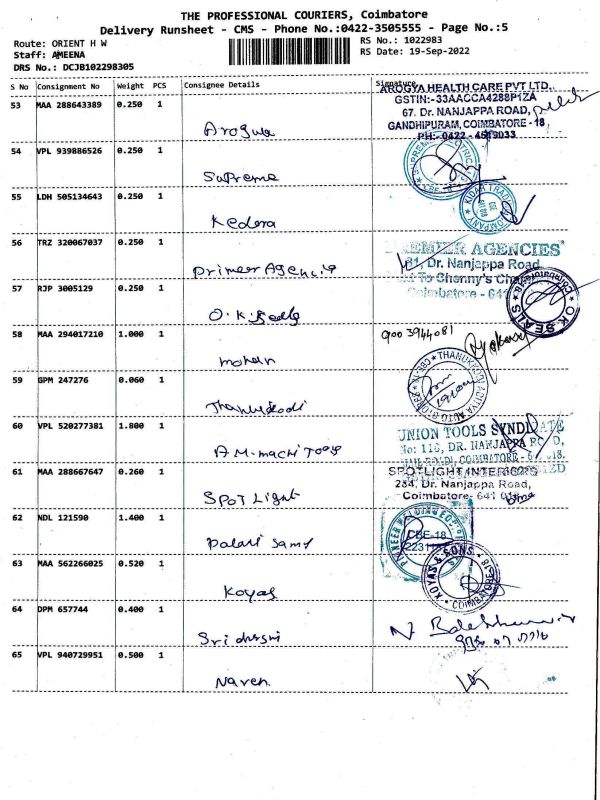 THE PROFESSIONAL COURIERS, Coimbatore
Delivery Runsheet - CMS - Phone No.:0422-3505555 - Page No.:5
Route: ORIENT H W
RS No.: 1022983
Staff: AMEENA
RS Date: 19-Sep-2022
DRS No.: DCJB102298305
S No Consignment No Weight PCS Consignee Details Signature
53 MAA 288643389 0.250 1
AROGYA HEALTH CARE PVT LTD.,
GSTIN:-33AACCA4288P1ZA
67, Dr. NANJAPPA ROAD,
GANDHIPURAM, COIMBATORE - 18,
PH:- 0422 - 4519033
54 VPL 939886526 0.250 1
Supreme
55 LDH 505134643 0.250 1
Kedera
56 TRZ 320067037 0.250 1
PREMIER AGENCIES
81, Dr. Nanjappa Road
Coimbatore - 641
57 RJP 3005129 0.250 1
O.K.
OK SEALS
58 MAA 294017210 1.000 1
mohan
9003944081
59 GPM 247276 0.060 1
60 VPL 520277381 1.800 1
UNION TOOLS SYNDICATE
No: 116, DR. NANJAPPA ROAD,
61 MAA 288667647 0.260 1
Spot Light
SPOTLIGHT INTERIORS
284, Dr. Nanjappa Road,
Coimbatore- 641 018
62 NDL 121590 1.400 1
Palani Samy
CBE-18
63 MAA 562266025 0.520 1
Koyas
KOYAS & SONS
COIMBATORE-18
64 DPM 657744 0.400 1
65 VPL 940729951 0.500 1
Naren